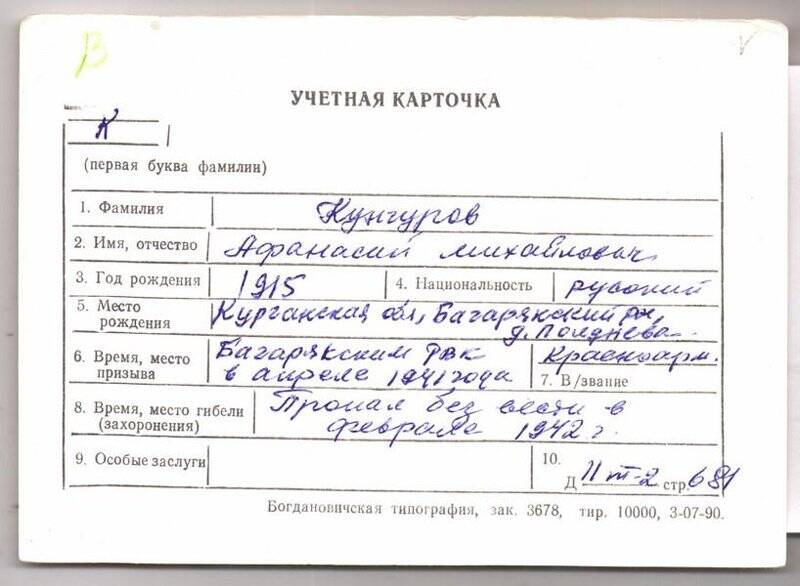 В
УЧЕТНАЯ КАРТОЧКА
К
(первая буква фамилии)
1. Фамилия Кунгуров
2. Имя, отчество Афанасий Михайлович
3. Год рождения 1915 4. Национальность русский
5. Место рождения Курганская обл, Багарякский рн,
д. Полднева
6. Время, место призыва Багарякским РВК
в апреле 1941 года
Красноарм.
7. В/звание
8. Время, место гибели (захоронения) Пропал без вести в
феврале 1942 г.
9. Особые заслуги
10.
Д II т-2 стр. 681
Богдановичская типография, зак. 3678, тир. 10000, 3-07-90.